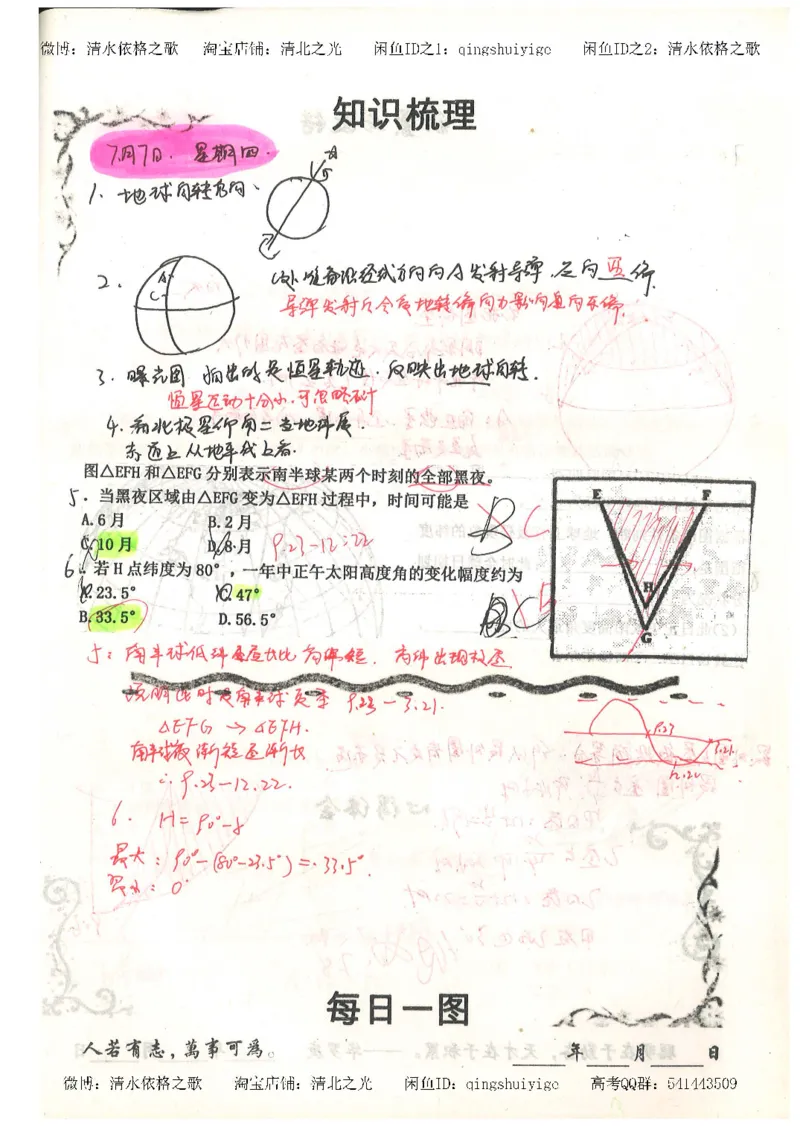 微博：清水依格之歌 淘宝店铺：清北之光 闲鱼ID之1：qingshuiyige 闲鱼ID之2：清水依格之歌
知识梳理
7月7日. 星期四.
1. 地球自转方向、
2.
A
C
C处准备沿经线方向向A发射导弹，应向西偏.
导弹发射后会有地转偏向力影响直向东偏.
3. 曝光图 拍出的是恒星轨迹，反映出地球自转.
恒星运动十分小，可忽略不计
4. 看北极星仰角=当地纬度.
赤道上从地平线上看.
图△EFH和△EFG分别表示南半球某两个时刻的全部黑夜。
5. 当黑夜区域由△EFG变为△EFH过程中，时间可能是
A.6月 B.2月
C.10月 D.8月 9.23-12.22
B C
6. 若H点纬度为80°，一年中正午太阳高度角的变化幅度约为
A.23.5° C.47°
B.33.5° D.56.5°
E F
H
G
5: 南半球低纬昼夜比
说明此时是南半球夏季 9.23-3.21.
△EFG → △EFH.
∴ 9.23-12.22.
9.23
3.21
12.22
6. H=90°-
最大: 90°-(80°-23.5°)=33.5°.
最小: 0°
每日一图
人若有志，萬事可為。 年 月 日
微博：清水依格之歌 淘宝店铺：清北之光 闲鱼ID：qingshuiyige 高考QQ群：541443509